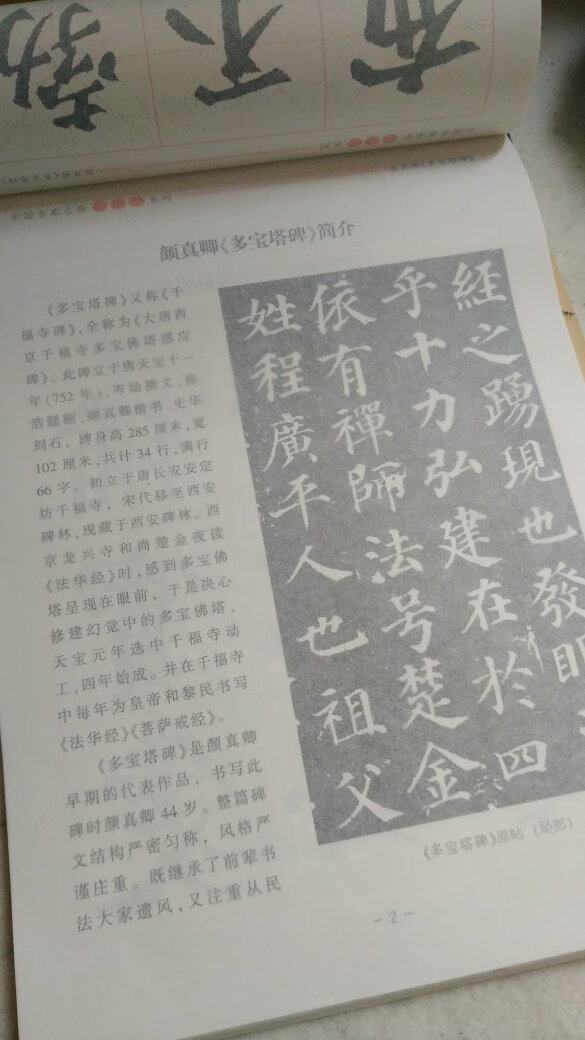 勃 不 布
中国名家名帖
颜真卿《多宝塔碑》简介
《多宝塔碑》又称《千
福寺碑》,全称为《大唐西
京千福寺多宝佛塔感应
碑》。此碑立于唐天宝十一
年(752 年),岑勋撰文、徐
浩题额、颜真卿楷书、史华
刻石。碑身高 285 厘米,宽
102 厘米,共计 34 行,满行
66 字。初立于唐长安安定
坊千福寺,宋代移至西安
碑林,现藏于西安碑林。西
京龙兴寺和尚楚金夜读
《法华经》时,感到多宝佛
塔呈现在眼前,于是决心
修建幻觉中的多宝佛塔,
天宝元年选中千福寺动
工,四年始成。并在千福寺
中每年为皇帝和黎民书写
《法华经》《菩萨戒经》。
《多宝塔碑》是颜真卿
早期的代表作品,书写此
碑时颜真卿 44 岁。整篇碑
文结构严密匀称,风格严
谨庄重。既继承了前辈书
法大家遗风,又注重从民
經之踴現也發即
乎十力弘建在於四
依有禪師法号楚金
姓程廣平人也祖父
《多宝塔碑》原帖(局部)
- 2 -